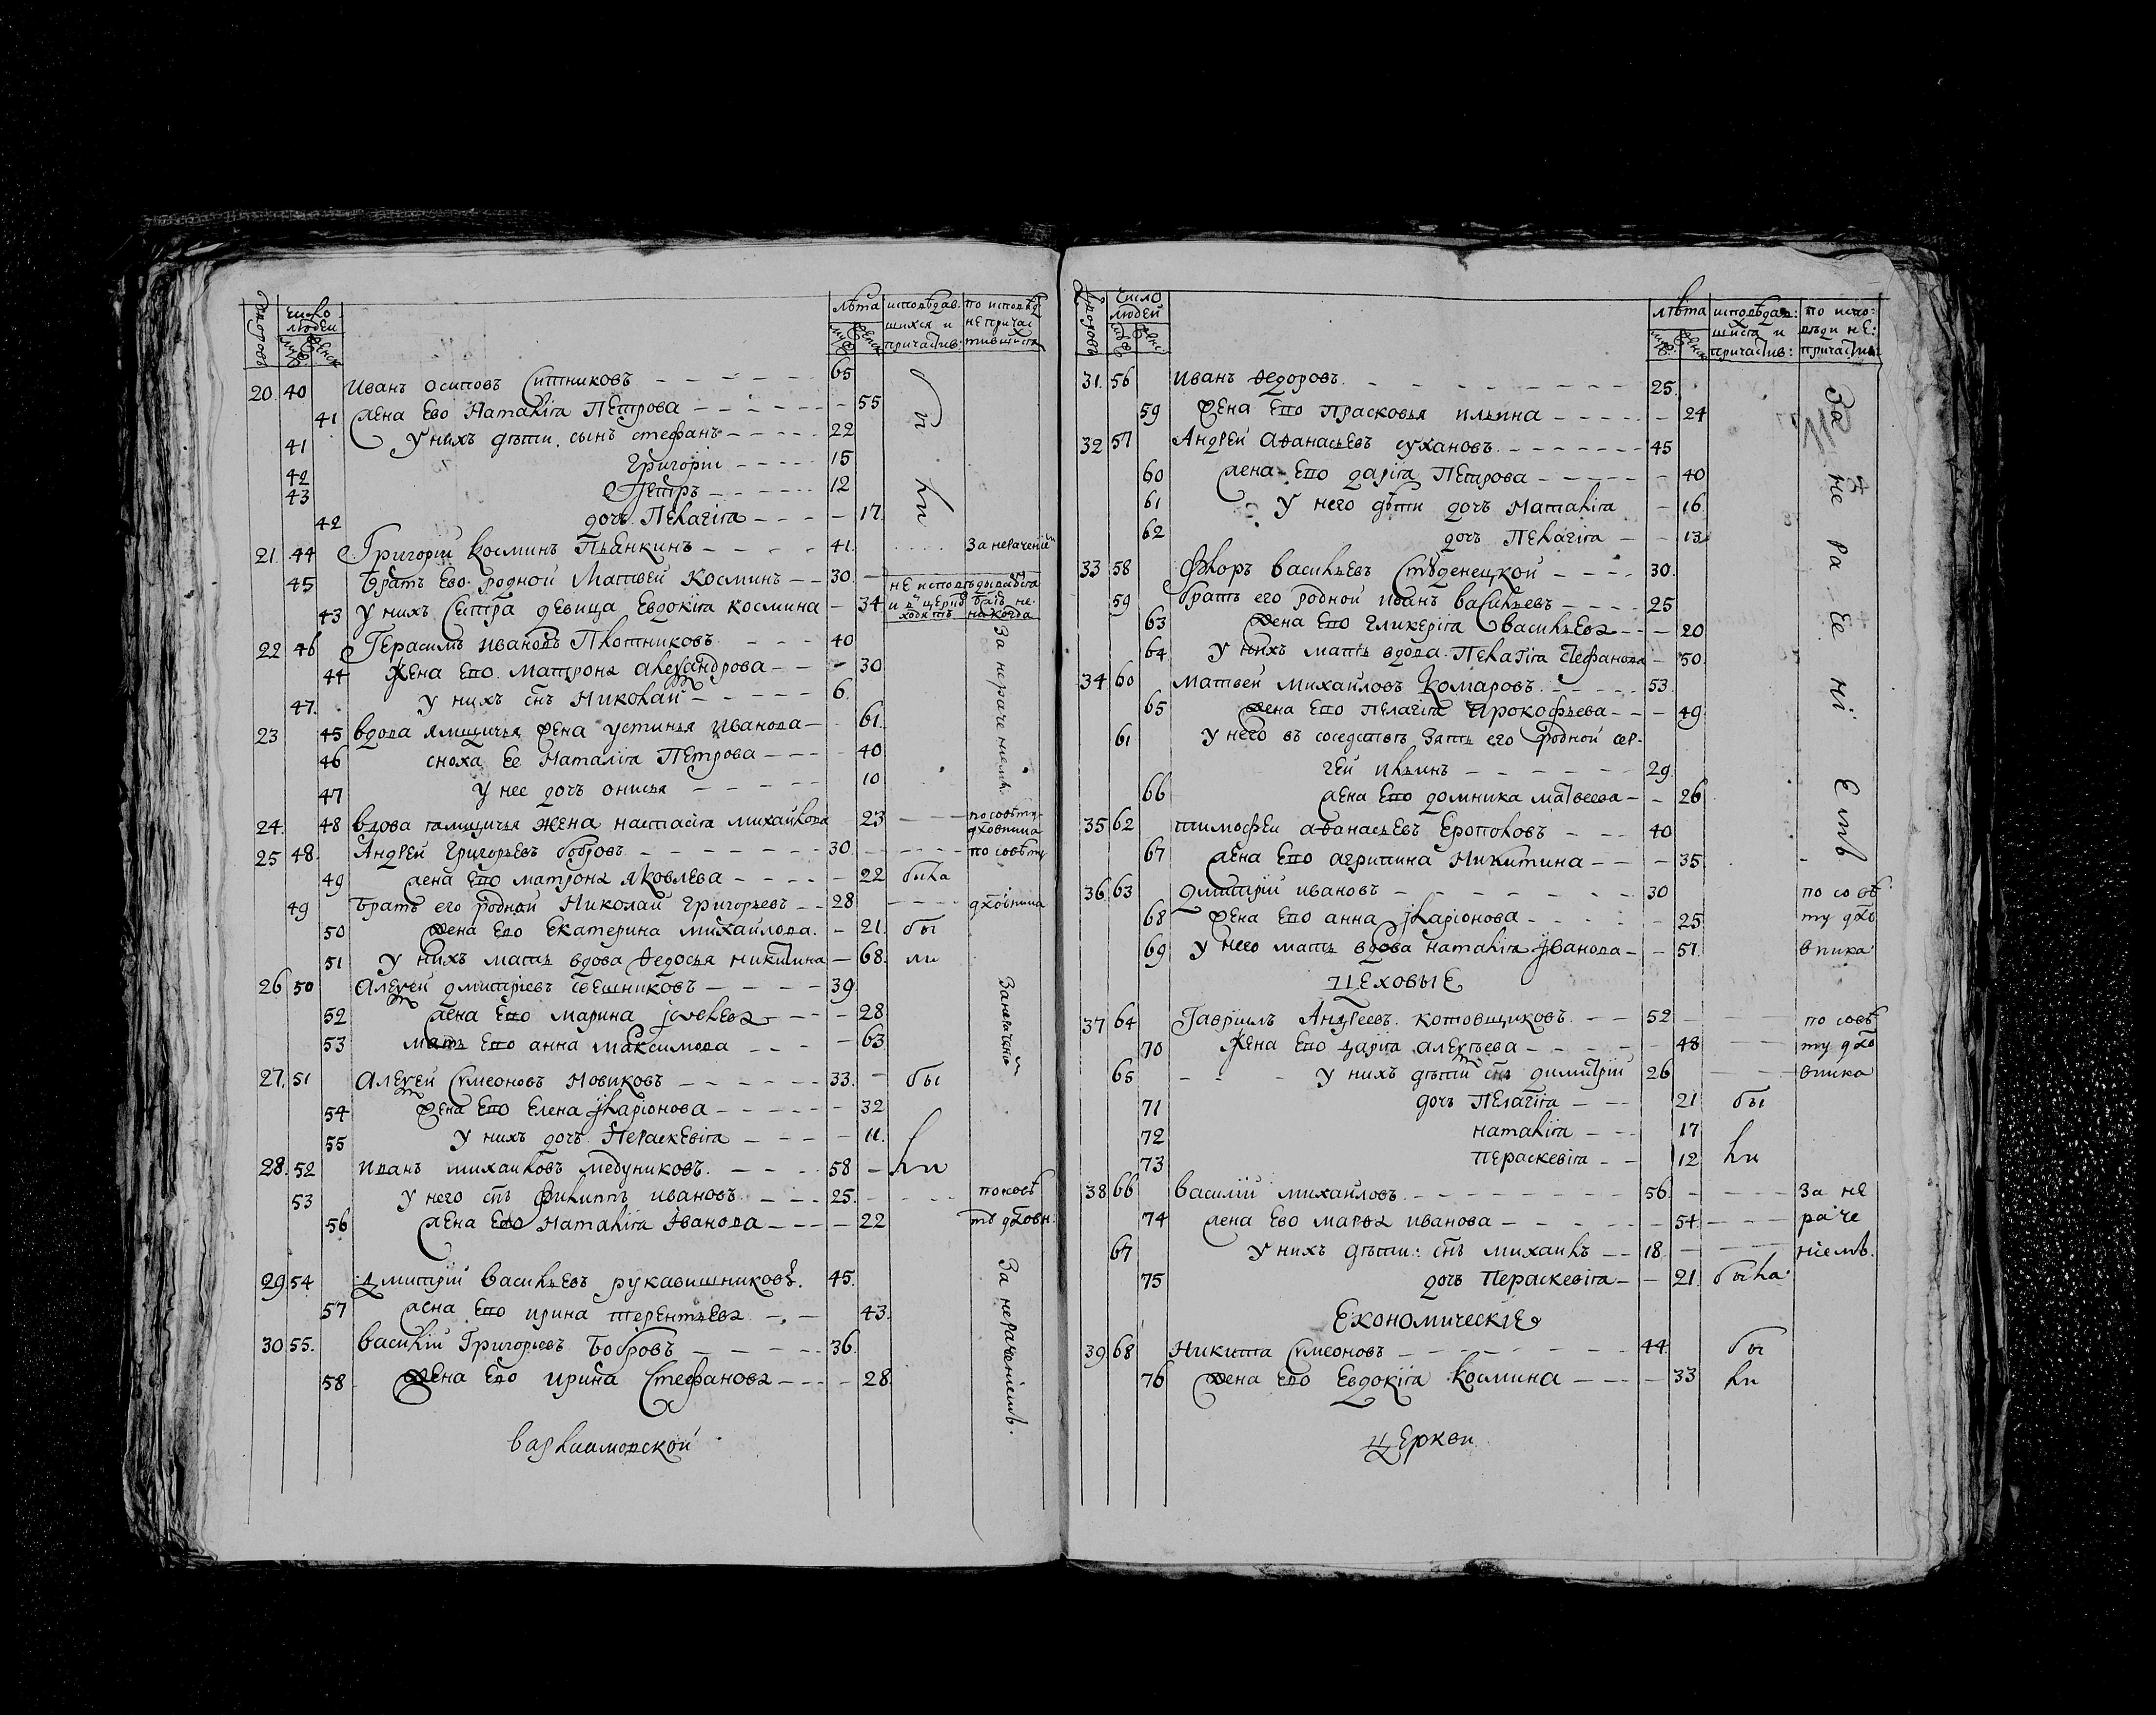 дворовъ число людей муж женск лѣта муж женск исповѣдавшихся и причастив: по исповѣд не причастившихся
20 40 Иванъ Осиповъ Ситниковъ 65
41 жена Ево Наталїя Петрова 55
41 У нихъ дѣти сынъ стефанъ 22
42 Григорїи 15
43 Петръ 12
42 дочь Пелагїя 17
21 44 Григорїи Косминъ Пьянкинъ 41 За нерачениемъ
45 братъ Ево родной Матвей Косминъ 30 не исповѣдывался
43 У нихъ Сестра девица Евдокїя Космина 34 и в церковь ходитъ никогда
22 46 Герасимъ Ивановъ Плотниковъ 40
44 Жена Ево Матрона Александрова 30
47 У нихъ снъ Николай 6
23 45 вдова ямщичья жена устинья Иванова 61
46 сноха Ее Наталїя Петрова 40
47 У нее дочь онисья 10
За нерачениемъ
24 48 вдова ямщичья жена настасїя михаилова 23 по совѣту дховника
25 48 Андрей Григорьевъ бобровъ 30 по совѣту
49 жена Ево матрона Яковлева 22 была
49 братъ его родной Николай Григорьевъ 28 дховника
50 жена Ево Екатерина михаилова 21 бы
51 У нихъ мать вдова Федосья никитина 68 ли
26 50 Алексей дмитрїевъ 39
52 жена Ево Марина 28
53 мать Ево анна максимова 63
27 51 Алексей Симеоновъ Новиковъ 33 бы
54 жена Ево Елена Иларїонова 32
55 У нихъ дочь Пераскевїя 11
28 52 Иванъ михаиловъ медуниковъ 58 ли
53 У него снъ Филиппъ ивановъ 25 по совѣ
56 жена Ево Наталїя Иванова 22 ту дховн
29 54 Дмитрїй Васильевъ рукавишниковъ 45
57 жена Ево ирина терентьева 43
30 55 Василїй Григорьевъ Бобровъ 36
58 жена Ево Ирина Стефанова 28
За нерачениемъ
варлаамовской
дворовъ число людей лѣта исповѣдав: шихся и причастив: по испо: вѣди не: причастив:
31 56 Иванъ Федоровъ 25
59 жена Ево Прасковья ильина 24
32 57 Андрей Афанасьевъ сухановъ 45
60 жена Ево дарїя Петрова 40
61 У него дѣти дочь Наталїя 16
62 дочь Пелагїя 13
33 58 Флоръ Васильевъ Студенецкой 30
59 братъ его родной иванъ васильевъ 25
63 жена Ево гликерїя васильева 20
64 У нихъ мать вдова Пелагїя Стефанова 50
34 60 Матвей михайловъ Комаровъ 53
65 жена Ево пелагїя Прокофьева 49
61 У него въ соседствѣ зять его родной сер-
гей ильинъ 29
66 жена Ево домника матвеева 26
35 62 тимофей афанасьевъ Ерополовъ 40
67 жена Ево агрипина Никитина 35
За нераченїемъ
36 63 дмитрїй ивановъ 30 по совѣ
68 жена Ево анна Иларїонова 25 ту дхо
69 У него мать вдова наталїя Иванова 51 вника
Цеховые
37 64 Гаврїилъ Андреевъ котовщиковъ 52 по совѣ
70 Жена Ево дарїя алексѣева 48 ту дхо
65 У нихъ дѣти снъ димитрїй 26 вника
71 дочь Пелагїя 21 бы
72 наталїя 17
73 пераскевїя 12 ли
38 66 василїй михаиловъ 56 за не
74 жена Ево марфа иванова 54 раче
67 У нихъ дѣти: снъ михаилъ 18 нїемъ.
75 дочь Пераскевїя 21 была
Економическїе
39 68 Никита Симеоновъ 44 бы
76 жена Ево Евдокїя Космина 33 ли
церкви